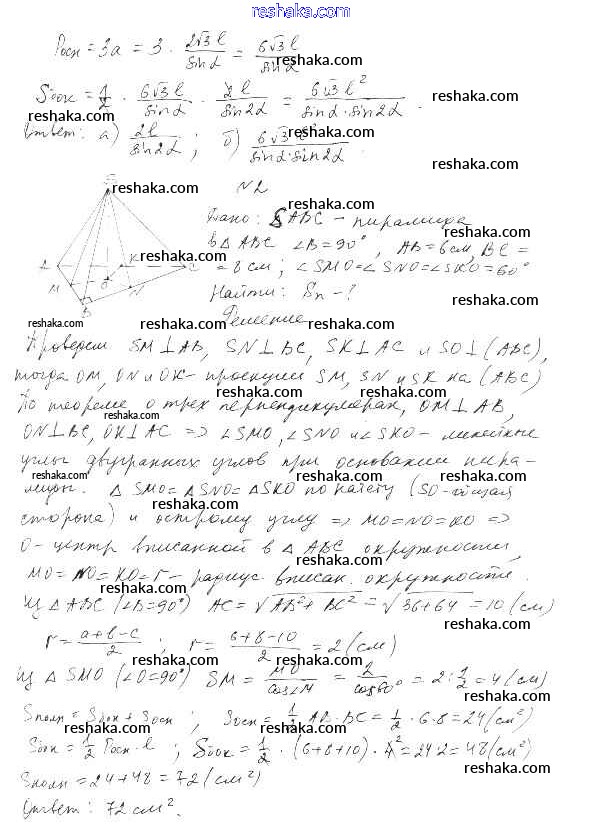 reshaka.com
Pосн = 3a = 3 · 2√3 l / sin α = 6√3 l / sin α
reshaka.com
Sбок = 1/2 · 6√3 l / sin α · 2l / sin 2α = 6√3 l² / sin α · sin 2α .
reshaka.com
reshaka.com
reshaka.com
Ответ: а) 2l / sin 2α ; б) 6√3 l² / sin α · sin 2α .
reshaka.com
reshaka.com
N2
reshaka.com
Дано: SABC – пирамида
reshaka.com
в Δ ABC ∠B = 90°, AB = 6 см, BC =
= 8 см; ∠SMO = ∠SNO = ∠SKO = 60°
reshaka.com
Найти: Sп - ?
reshaka.com
A M B O K N C
reshaka.com
Решение
reshaka.com
Проведем SM ⊥ AB, SN ⊥ BC, SK ⊥ AC и SO ⊥ (ABC),
reshaka.com
тогда OM, ON и OK – проекции SM, SN и SK на (ABC)
reshaka.com
По теореме о трех перпендикулярах, OM ⊥ AB,
reshaka.com
ON ⊥ BC, OK ⊥ AC => ∠SMO, ∠SNO и ∠SKO – линейные
reshaka.com
углы двугранных углов при основании пира-
reshaka.com
миды. Δ SMO = Δ SNO = Δ SKO по катету (SO – общая
reshaka.com
сторона) и острому углу => MO = NO = KO =>
reshaka.com
O – центр вписанной в Δ ABC окружности,
reshaka.com
MO = NO = KO = r – радиус вписан. окружности.
reshaka.com
Из Δ ABC (∠B = 90°) AC = √AB² + BC² = √36 + 64 = 10 (см)
reshaka.com
r = a + b - c / 2 ; r = 6 + 8 - 10 / 2 = 2 (см)
reshaka.com
reshaka.com
Из Δ SMO (∠O = 90°) SM = MO / cos∠M = 2 / cos 60° = 2 : 1/2 = 4 (см)
reshaka.com
reshaka.com
Sполн = Sбок + Sосн ; Sосн = 1/2 AB · BC = 1/2 · 6 · 8 = 24 (см²)
reshaka.com
Sбок = 1/2 Pосн · l ; Sбок = 1/2 · (6 + 8 + 10) · 4² = 24·2 = 48 (см²)
reshaka.com
reshaka.com
Sполн = 24 + 48 = 72 (см²)
reshaka.com
Ответ: 72 см².
reshaka.com